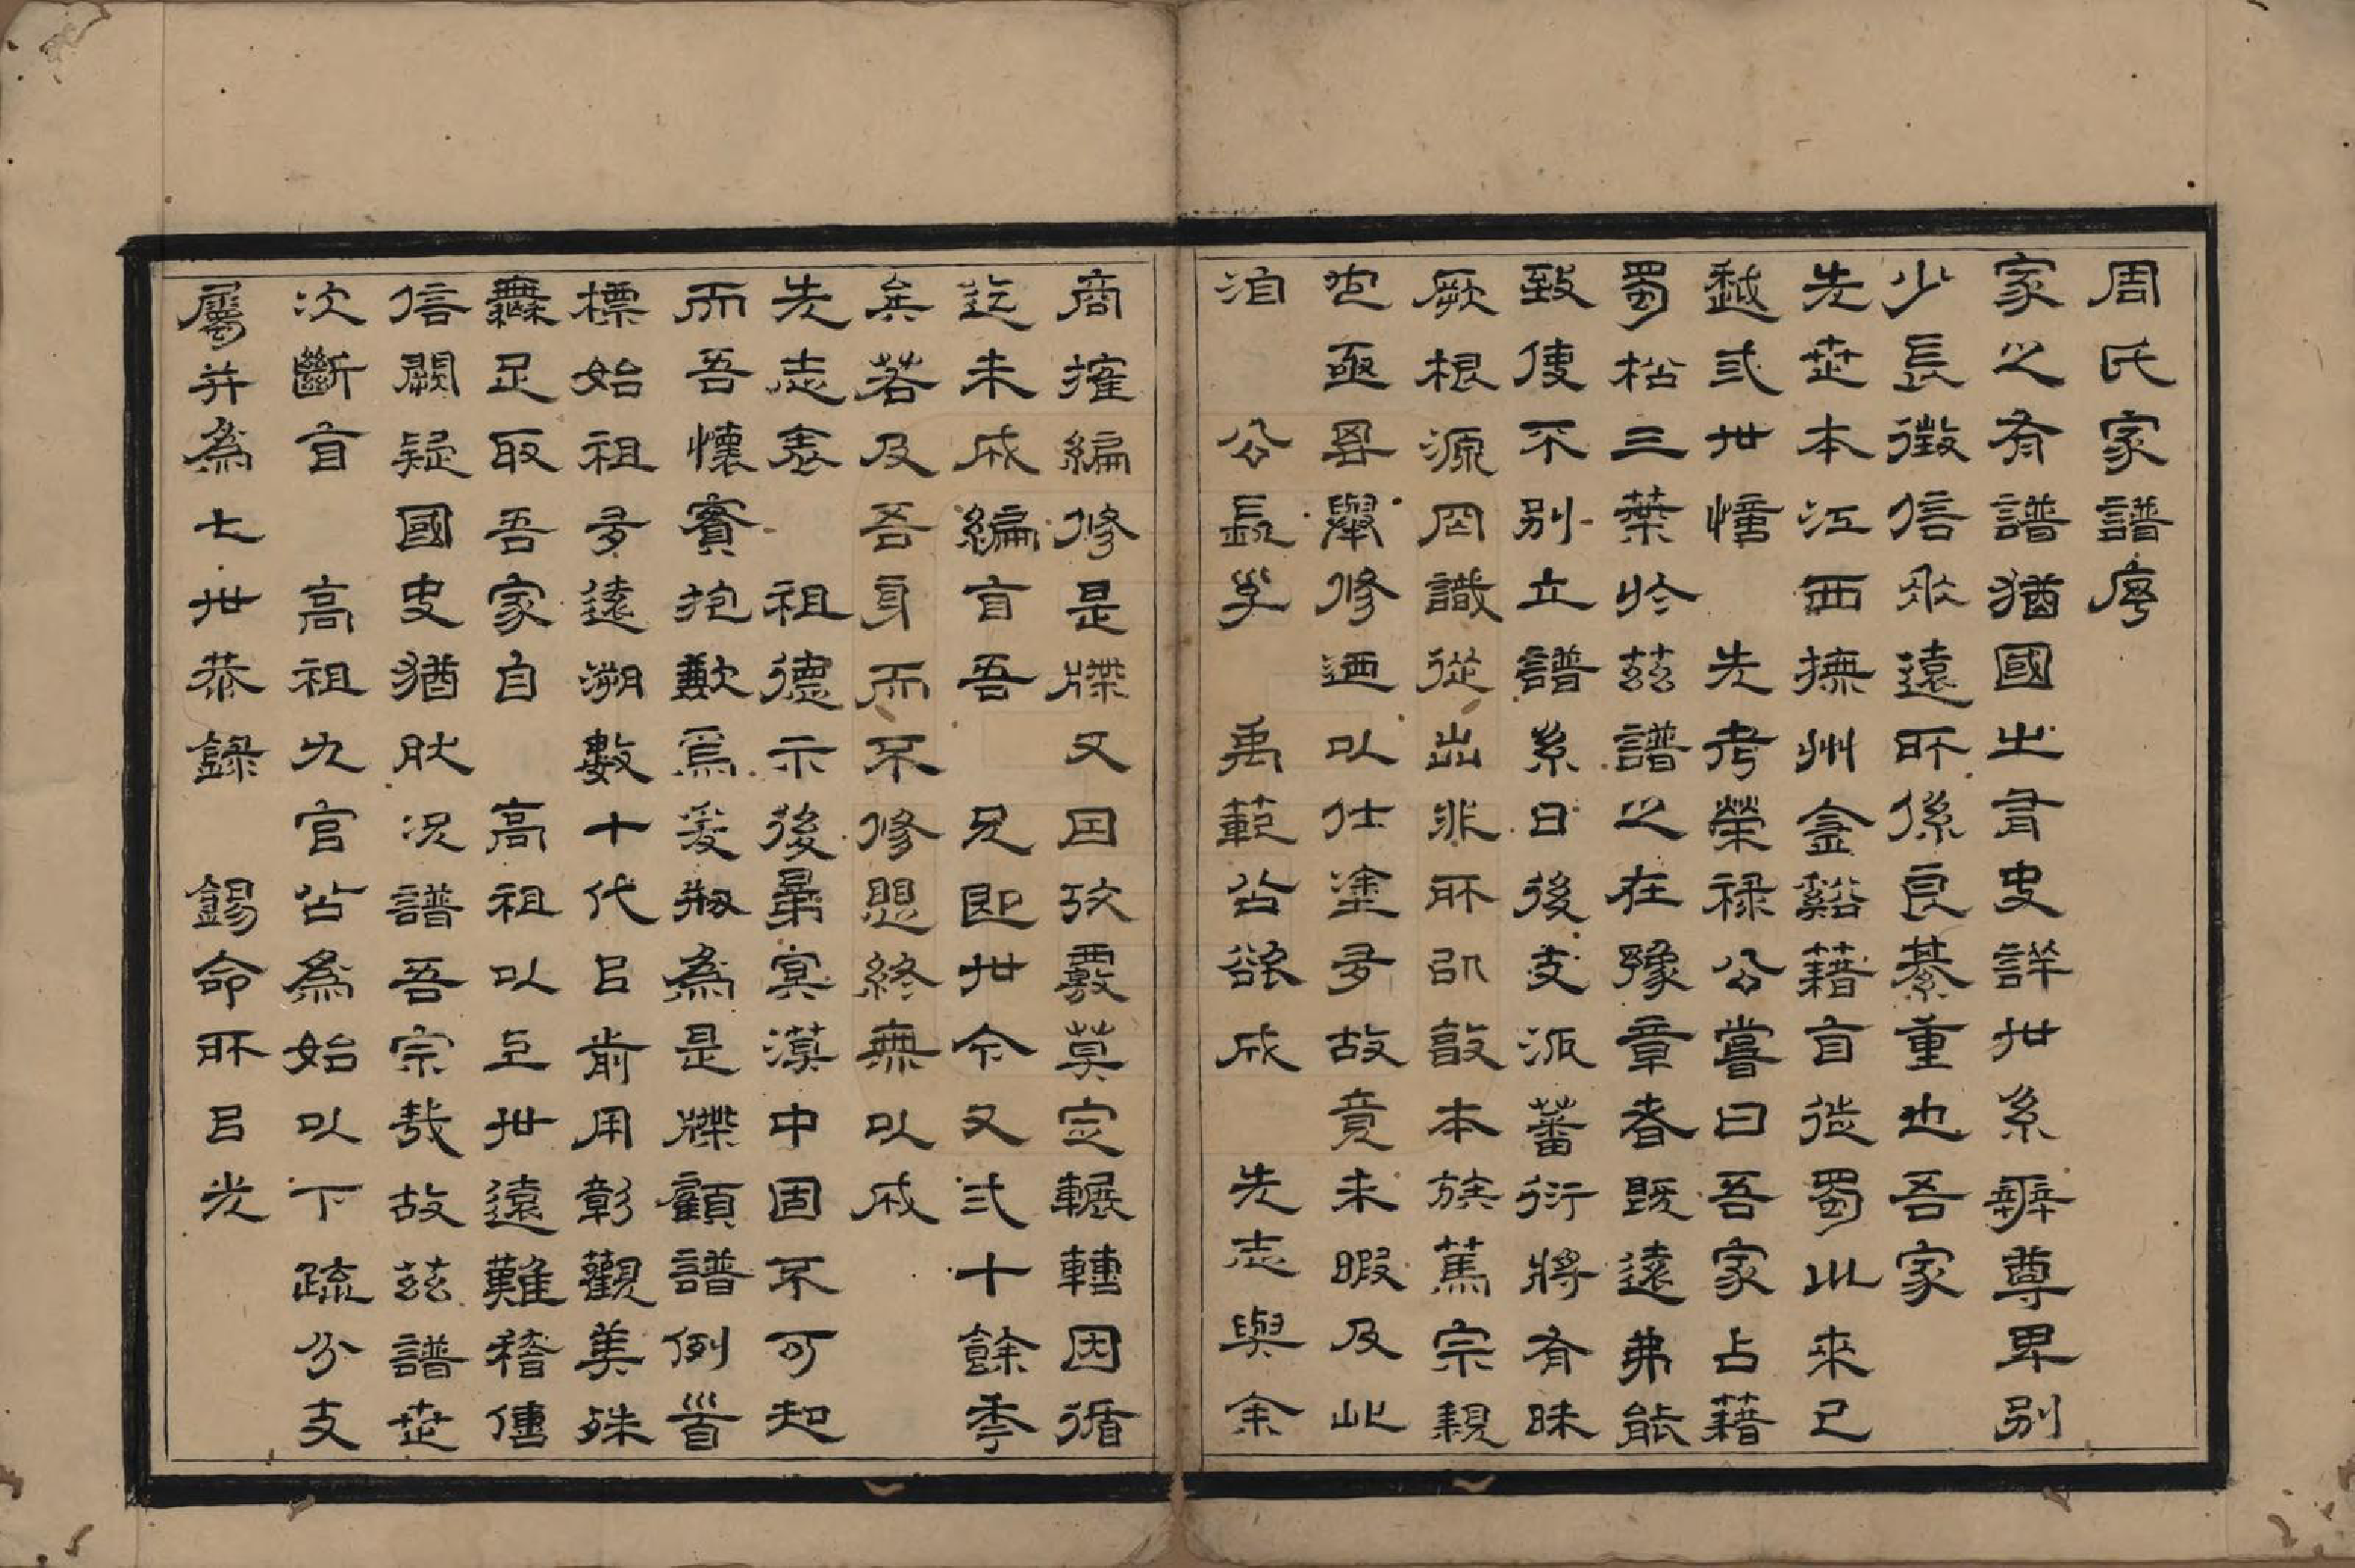 周氏家譜序
家之有譜猶國之有史詳世系辨尊卑別
少長徵信永遠所係良綦重也吾家
先世本江西撫州金谿籍自徙蜀以來已
越弍世憶 先考榮祿公嘗曰吾家占籍
蜀松三葉於茲譜之在豫章者既遠弗能
致使不別立譜系日後支派蕃衍將有昧
厥根源罔識從出非所以敦本族篤宗親
也亟畧舉修迺以仕塗多故竟未暇及此
洎 公長孚 禹範公欲成 先志與余
商搉編修是牒又因攷覈莫定輾轉因循
迄未成編自吾 兄即世今又弍十餘季
矣若及吾身而不修恩終無以成
先志表 祖德示後昆冥漠中固不可知
而吾懷實抱歉焉爰剏為是牒顧譜例首
標始祖多遠溯數十代以前用彰觀美殊
無足取吾家自 高祖以上世遠難稽傳
信闕疑國史猶肰況譜吾宗哉故茲譜世
次斷自 高祖九官公為始以下疏分支
屬并為七世恭錄 錫命所以光